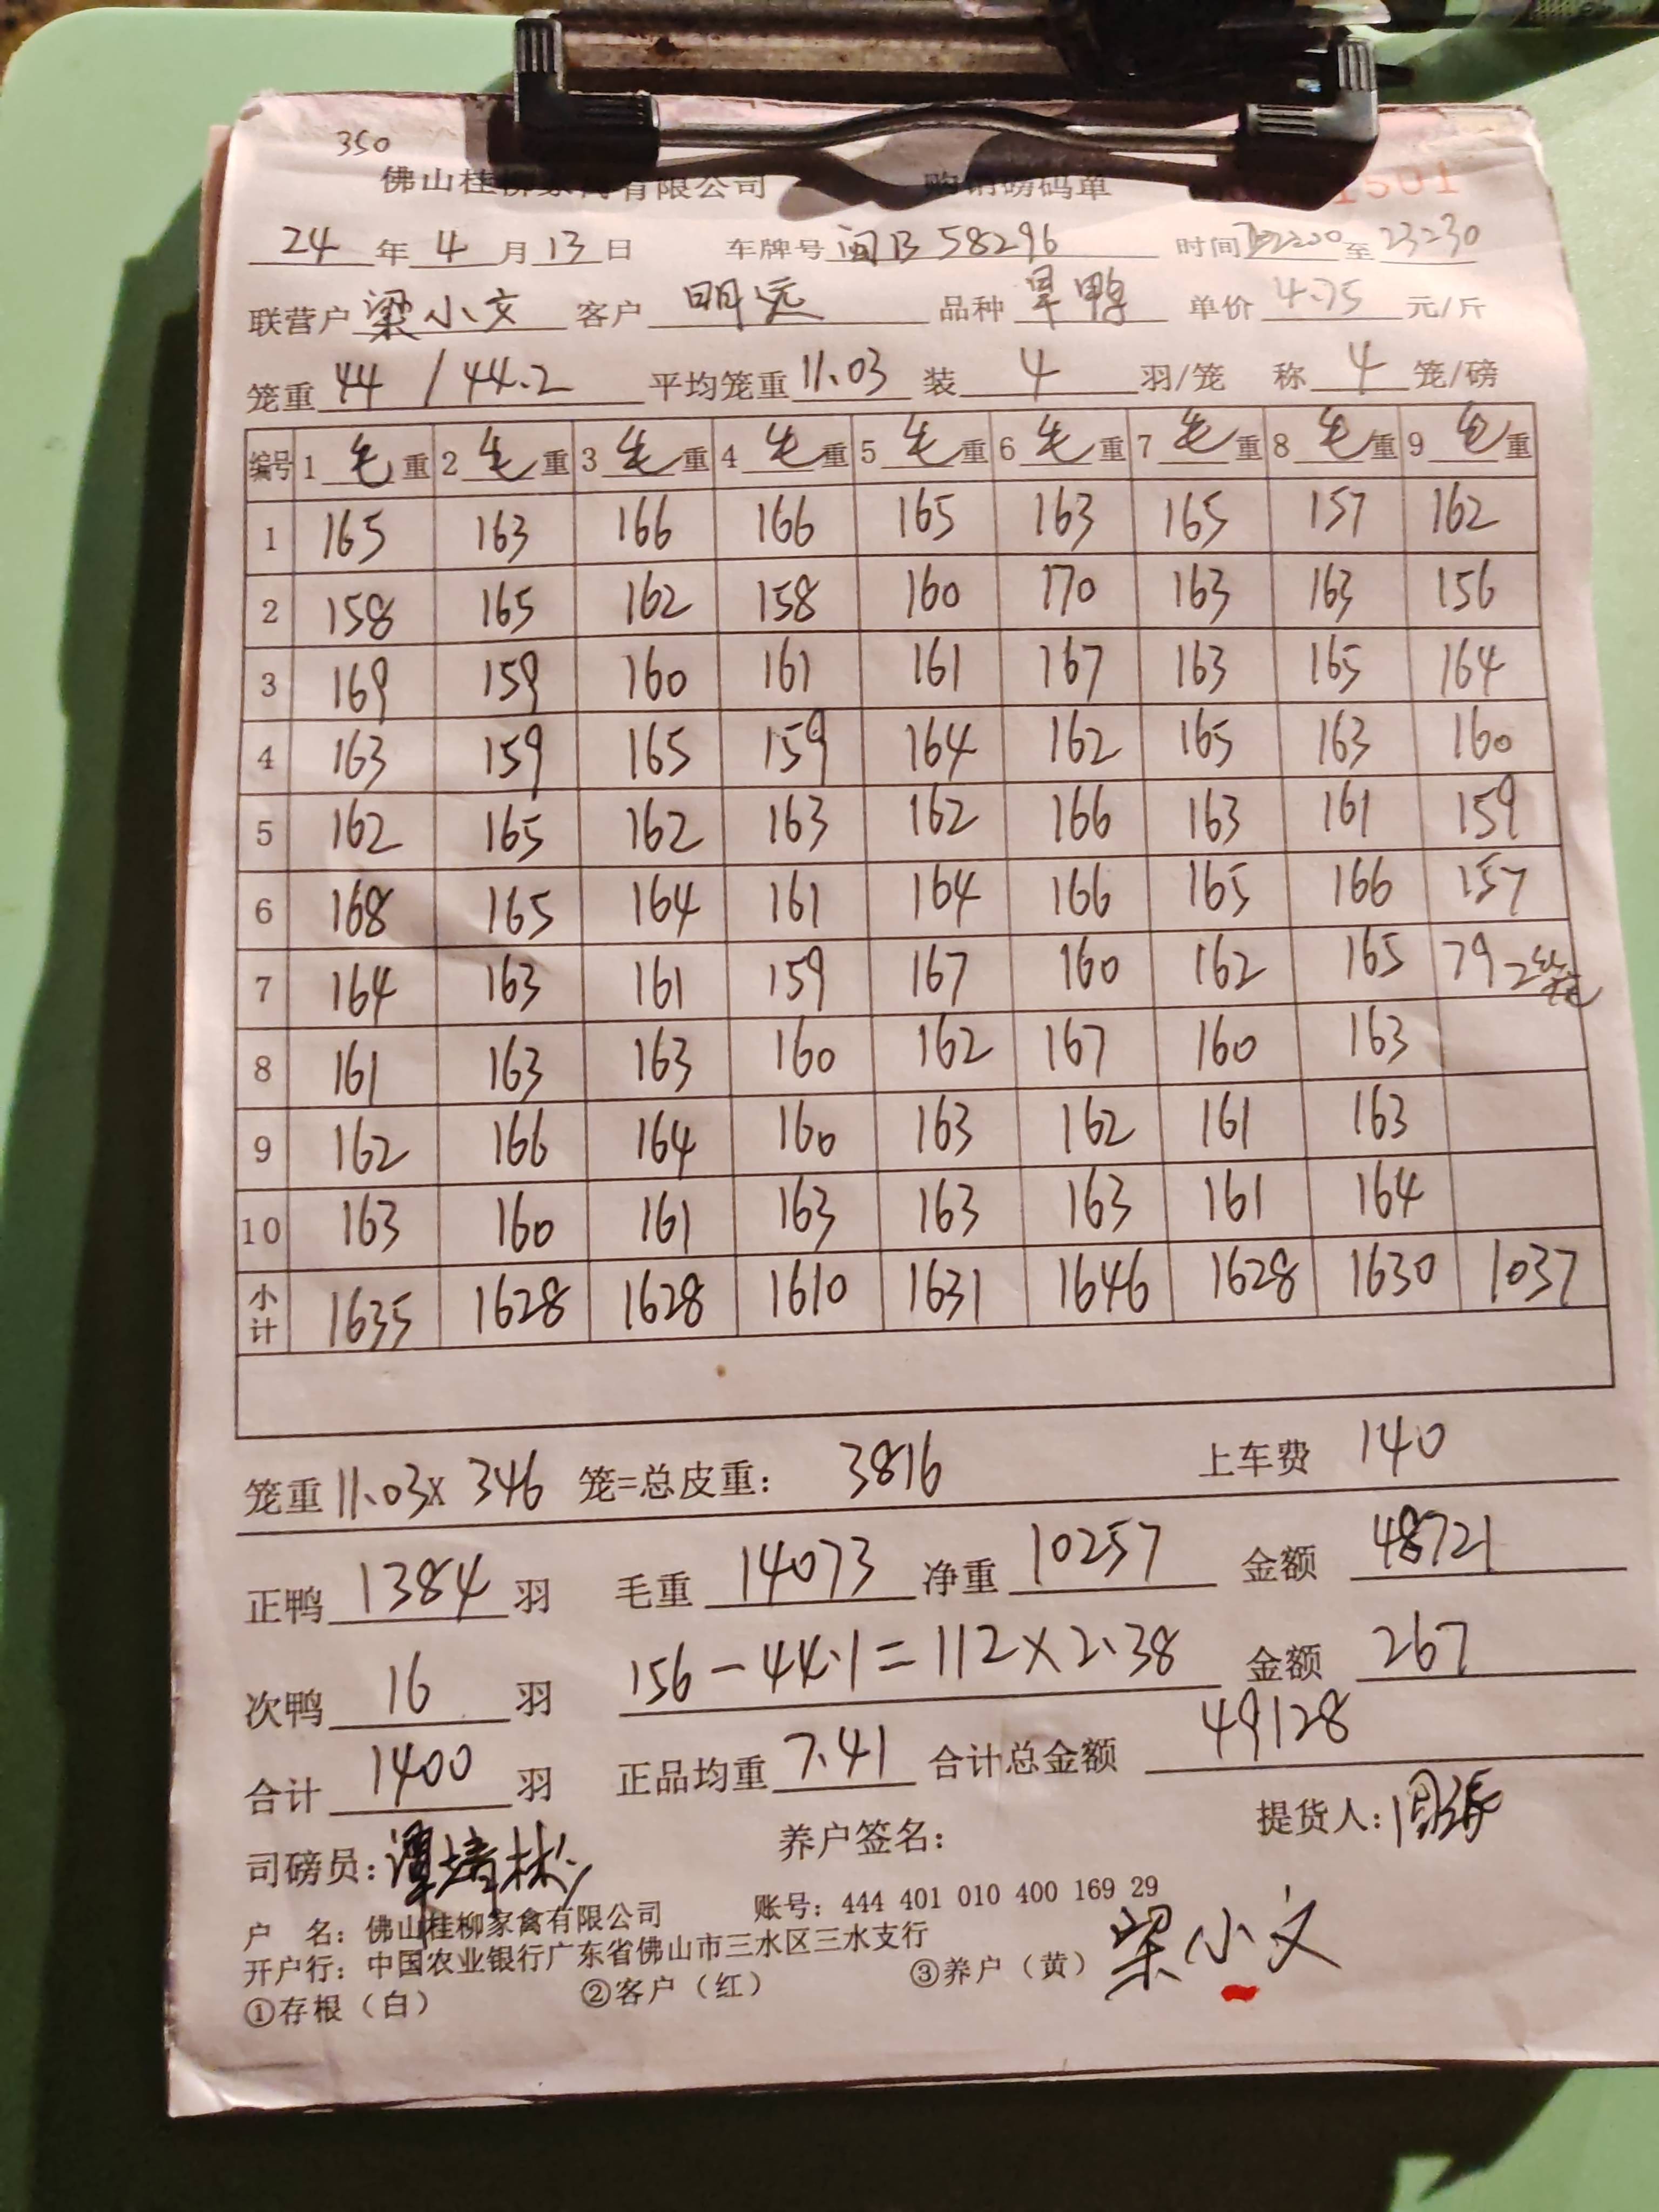 350
佛山桂柳家禽有限公司 购销磅码单 1501
24 年 4 月 13 日 车牌号 闽B 58296 时间 2200 至 23230
联营户 梁小文 客户 明远 品种 旱鸭 单价 4.75 元/斤
笼重 44 / 44.2 平均笼重 11.03 装 4 羽/笼 称 4 笼/磅
编号 1 毛 重 2 毛 重 3 毛 重 4 毛 重 5 毛 重 6 毛 重 7 毛 重 8 毛 重 9 毛 重
1 165 163 166 166 165 163 165 157 162
2 158 165 162 158 160 170 163 163 156
3 169 159 160 161 161 167 163 165 164
4 163 159 165 159 164 162 165 163 160
5 162 165 162 163 162 166 163 161 159
6 168 165 164 161 164 166 165 166 157
7 164 163 161 159 167 160 162 165 79 2笼
8 161 163 163 160 162 167 160 163
9 162 166 164 160 163 162 161 163
10 163 160 161 163 163 163 161 164
小计 1635 1628 1628 1610 1631 1646 1628 1630 1037
笼重 11.03 x 346 笼=总皮重: 3816 上车费 140
正鸭 1384 羽 毛重 14073 净重 10257 金额 48721
次鸭 16 羽 156 - 44.1 = 112 x 2.38 金额 267
合计 1400 羽 正品均重 7.41 合计总金额 49128
司磅员: 谭培彬 养户签名: 提货人:
户 名: 佛山桂柳家禽有限公司 账号: 444 401 010 400 169 29
开户行: 中国农业银行广东省佛山市三水区三水支行
①存根（白） ②客户（红） ③养户（黄） 梁小文